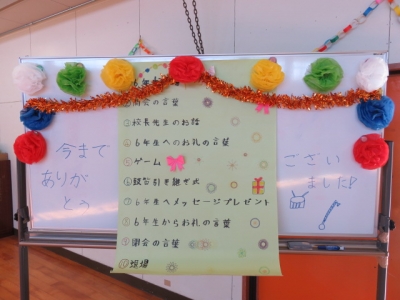 今まで
ありが
とう
開会の言葉
③校長先生のお話
④6年生へのお礼の言葉
⑤ゲーム
⑥鼓笛引き継ぎ式
⑦6年生へメッセージプレゼント
⑧6年生からお礼の言葉
⑨閉会の言葉
⑩退場
ござい
ました